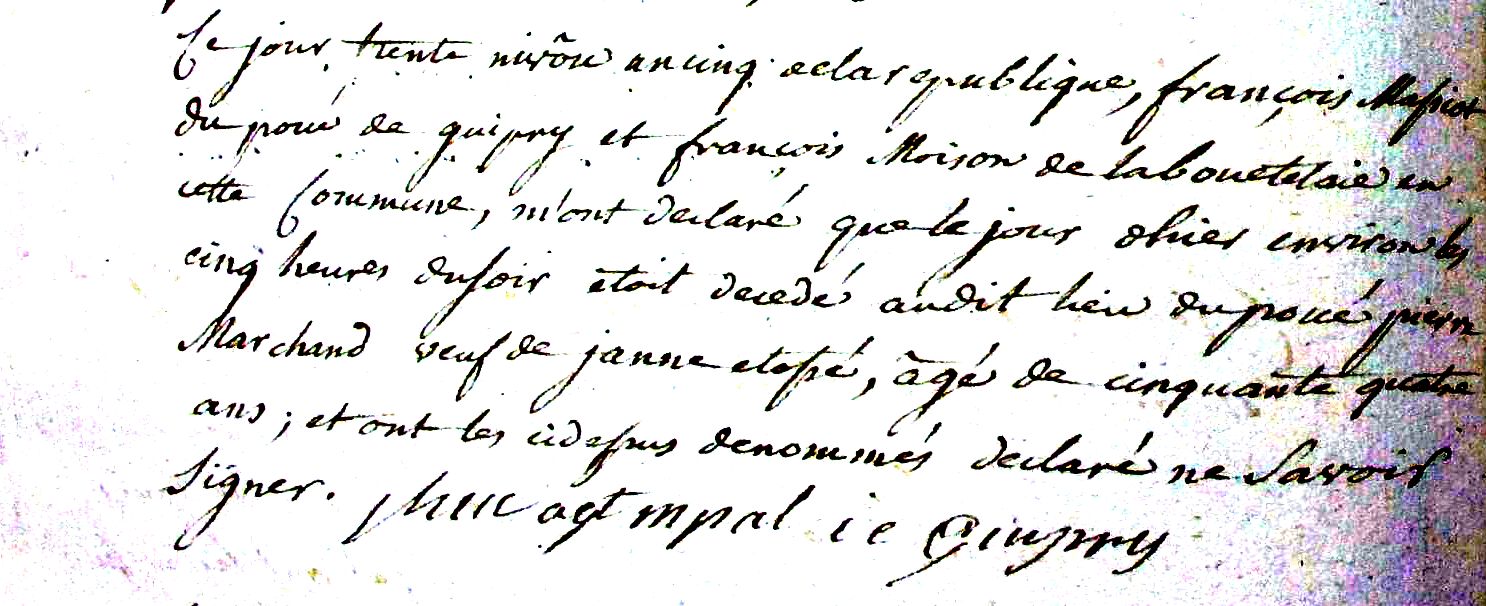 Ce jour trente nivôse an cinq de la republique, françois Massicot
du poué de guipry et françois Moison de la bouetelaie en
cette Commune, m'ont declaré que le jour d'hier environ les
cinq heures du soir etoit decedé audit lieu du poué pierre
Marchand veuf de janne etessé, âgé de cinquante quatre
ans ; et ont les cidessus denommés declaré ne Savoir
Signer. agt mpal de Guipry